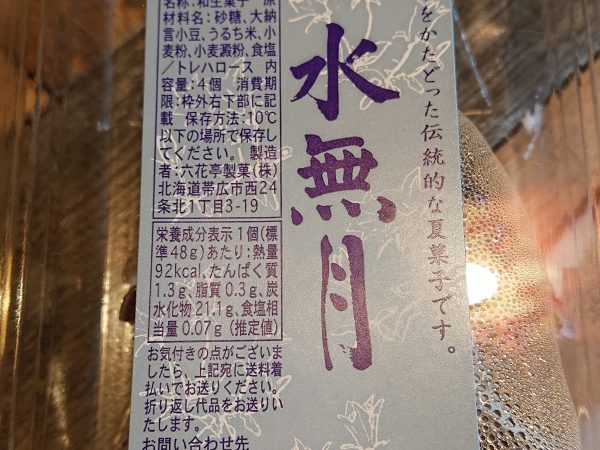 名称：和生菓子　原
材料名：砂糖、大納
言小豆、うるち米、小
麦粉、小麦澱粉、食塩
／トレハロース　内
容量：4個　消費期
限：枠外右下部に記
載　保存方法：10℃
以下の場所で保存し
てください。　製造
者：六花亭製菓（株）
北海道帯広市西24
条北1丁目3-19
栄養成分表示1個（標
準48g）あたり：熱量
92kcal、たんぱく質
1.3g、脂質0.3g、炭
水化物21.1g、食塩相
当量0.07g（推定値）
お気付きの点がございま
したら、上記宛に送料着
払いでお送りください。
折り返し代品をお送りい
たします。
お問い合わせ先
水無月
をかたどった伝統的な夏菓子です。